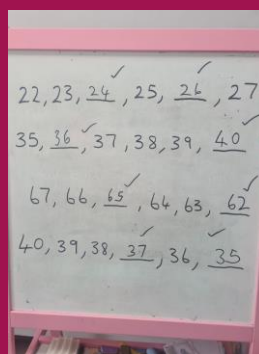 22, 23, 24, 25, 26, 27
35, 36, 37, 38, 39, 40
67, 66, 65, 64, 63, 62
40, 39, 38, 37, 36, 35